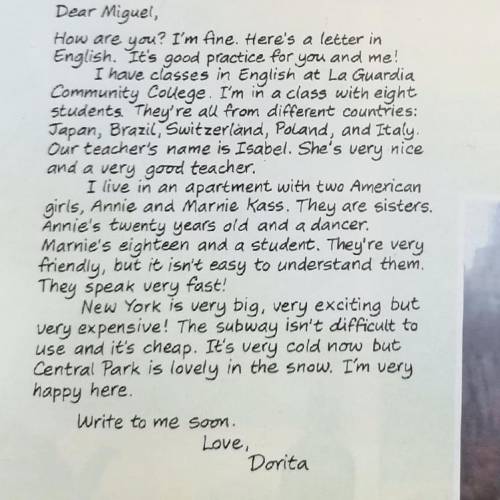 Dear Miguel,
How are you? I'm fine. Here's a letter in
English. It's good practice for you and me!
I have classes in English at La Guardia
Community College. I'm in a class with eight
students. They're all from different countries:
Japan, Brazil, Switzerland, Poland, and Italy.
Our teacher's name is Isabel. She's very nice
and a very good teacher.
I live in an apartment with two American
girls, Annie and Marnie Kass. They are sisters.
Annie's twenty years old and a dancer.
Marnie's eighteen and a student. They're very
friendly, but it isn't easy to understand them.
They speak very fast!
New York is very big, very exciting but
very expensive! The subway isn't difficult to
use and it's cheap. It's very cold now but
Central Park is lovely in the snow. I'm very
happy here.
Write to me soon.
Love,
Dorita